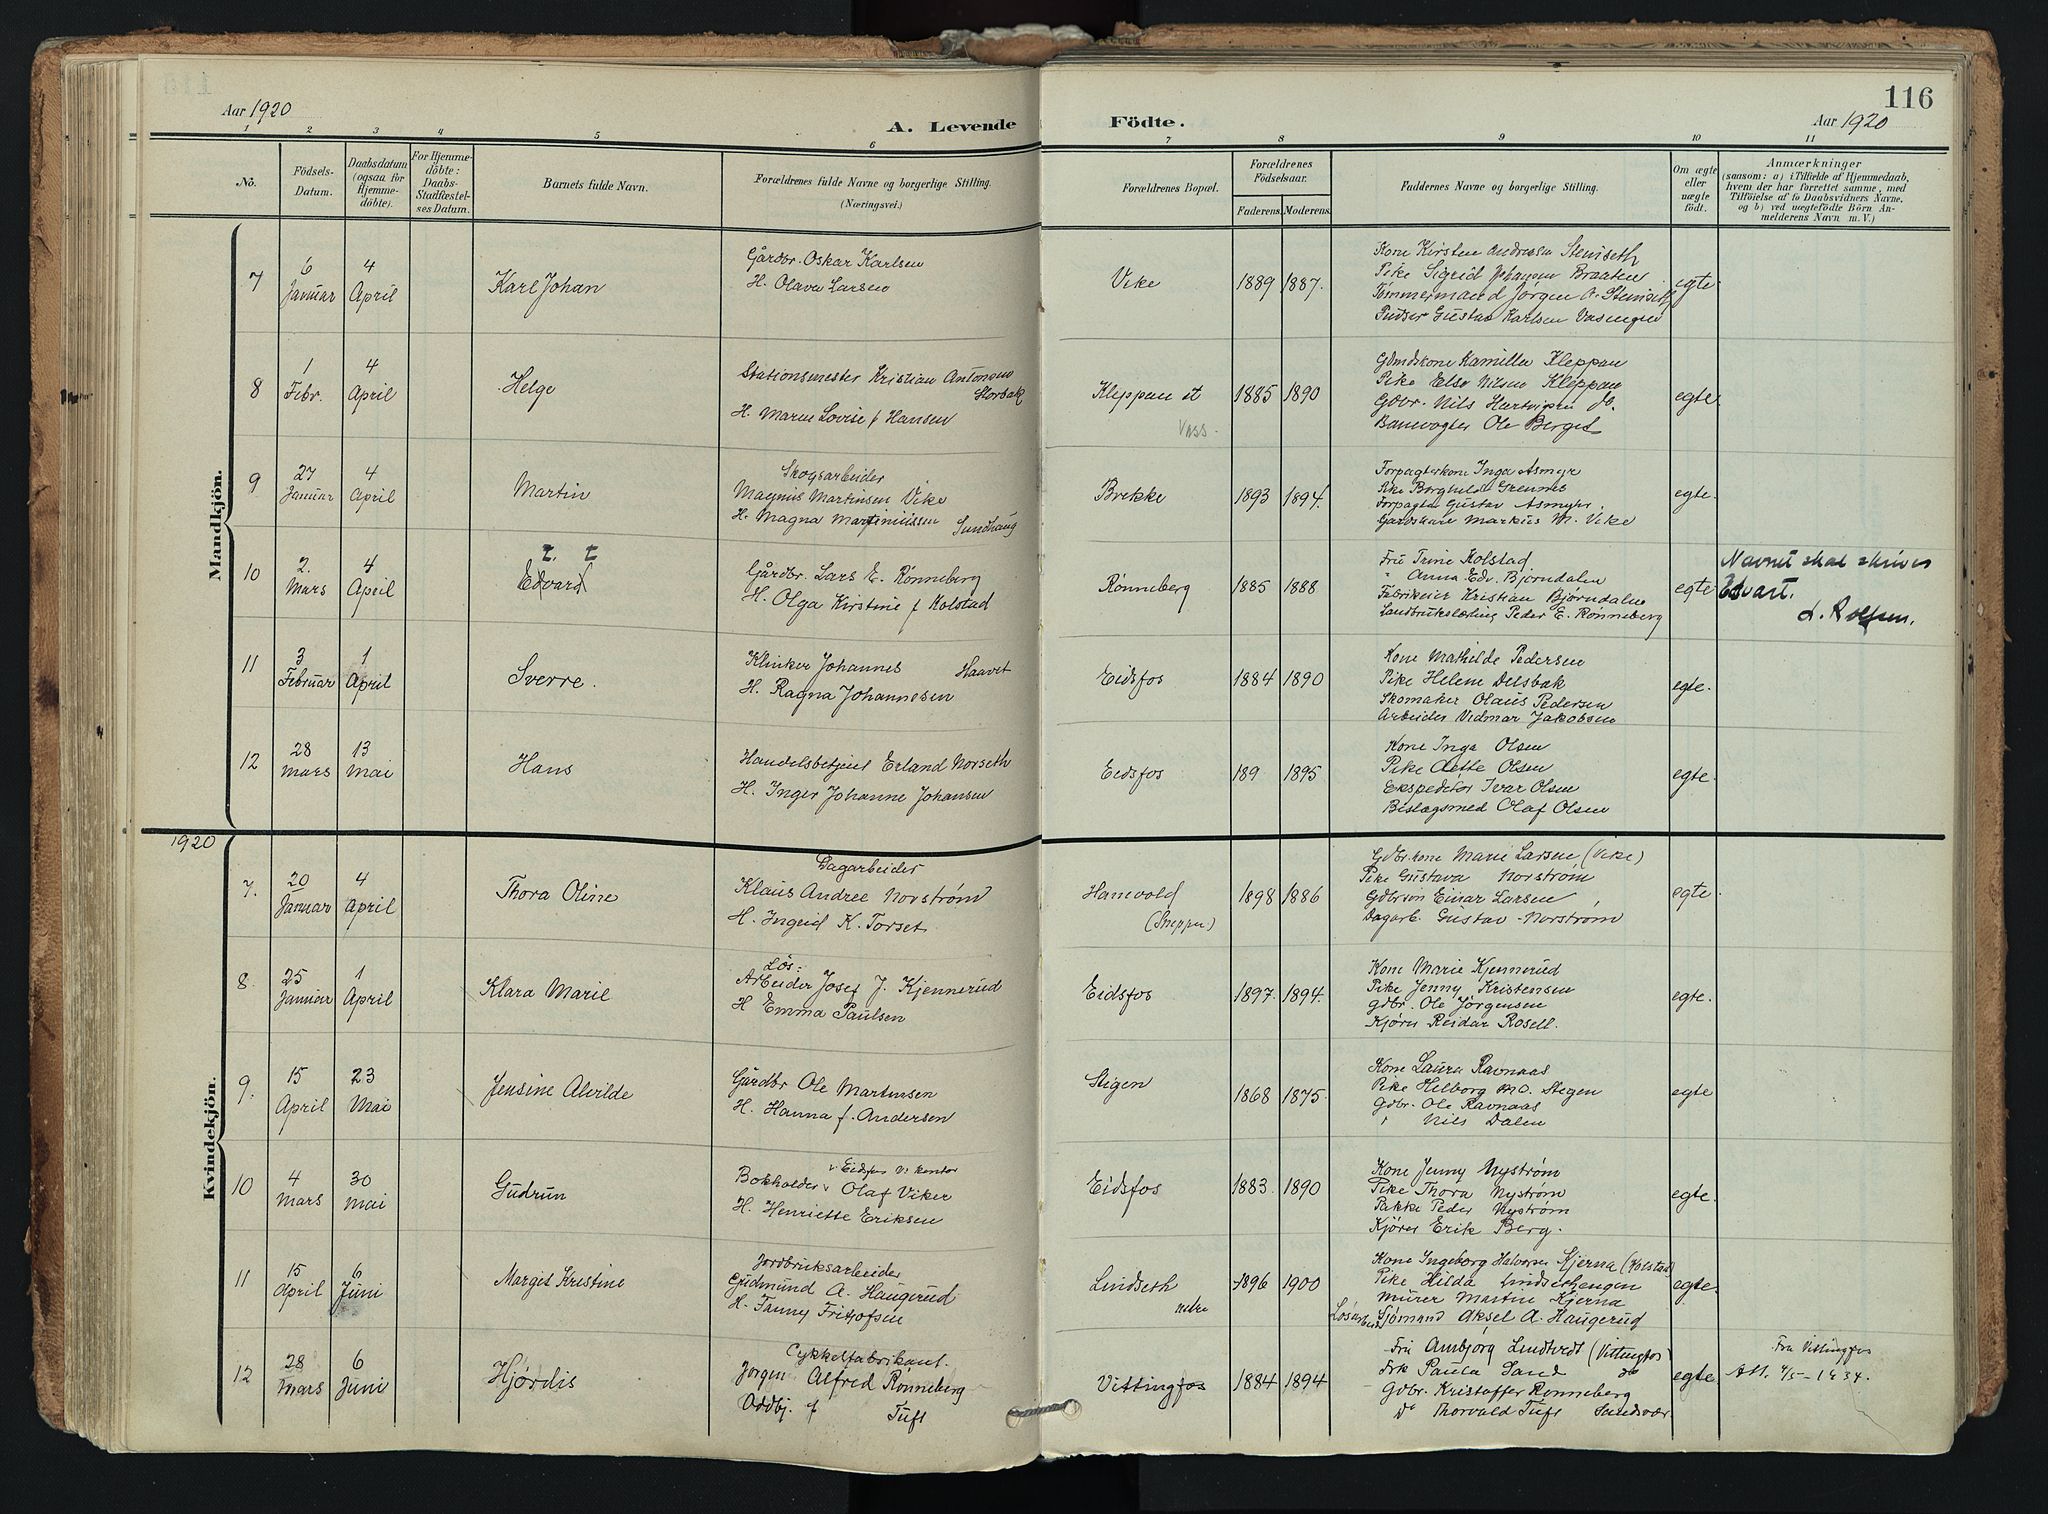 116
Aar 1920
A. Levende Födte.
Aar 1920
1 2 3 4 5 6 7 8 9 10 11
No.
Födsels-Datum.
Daabsdatum (ogsaa for Hjemme-döbte).
For Hjemme-döbte: Daabs-Stadfæstel-ses Datum.
Barnets fulde Navn.
Forældrenes fulde Navne og borgerlige Stilling. (Næringsvei.)
Forældrenes Bopæl.
Forældrenes Födselsaar.
Faderens. Moderens.
Faddernes Navne og borgerlige Stilling.
Om ægte eller uægte födt.
Anmærkninger
(saasom: a) i Tilfælde af Hjemmedaab, hvem der har forrettet samme, med Tilföielse af to Daabsvidners Navne, og b) ved uægtefödte Börn An-melderens Navn m. V.)
Mandkjön.
7
6 Januar
4 April
Karl Johan
Gårdbr. Oskar Karlsen
H. Olava Larsen
Vike
1889 1887.
Kone Kirsten Andresen Stenseth
Pike Sigrid Johansen Braaten
Tömmermand Jørgen A. Stenseth
Pudser Gustav Karlsen
egte
8
1 Febr.
4 April
Helge
Stationsmester Kristian Antonsen
Storbak
H. Maren Lovise f Hansen
Kleppan st
Vass.
1885 1890
Kamilla Kleppan
Pike Else Nilsen Kleppan
Gdbr. Nils Hartvigsen do.
Banevogter Ole Berget
egte.
9
27 Januar
4 April
Martin
Skogsarbeider
Magnus Martinsen Vike
H. Magna Martiniussen
Sundhaug
Brekke
1893 1894.
Forpagterkone Inga Asmyr
Pike Borghild Grennes
Forpagter Gustav Asmyhr.
Markus M. Vike
egte.
10
2. Mars
4 April
t. t
Edvard
Gårdbr. Lars E. Rønneberg
H. Olga Kirstine f Kolstad
Rønneberg
1885 1888
Fru Trine Kolstad.
" Anna Edv. Bjørndalen
Fabrikeier Kristian Bjørndalen
Peder E. Rønneberg
egte
Navnet skal skrives
Edvart.
11
3 Februar
1 April
Sverre.
Klinker Johannes Haavet
H. Ragna Johannesen
Eidsfos
1884 1890
Kone Mathilde Pedersen
Pike Helene Delsbak
Skomaker Olaus Pedersen
Arbeider Vidmar Jakobsen
egte.
12
28 Mars
13 Mai
Hans
Handelsbetjent Erland Norseth
H. Inger Johanne Johansen
Eidsfos
189 1895
Kone Inga Olsen
Pike Aette Olsen
Ekspeditør Ivar Olsen
Beslagsmed Olaf Olsen
egte.
1920
Kvindekjön.
7.
20 Januar
4 April
Thora Oline
Dagarbeider
Klaus Andree Norstrøm
H. Ingrid K. Torset.
Hanevold
1898 1886
Gdbr.kone Marie Larsen (Vike)
Pike Gustava Norstrøm
Gdbrsøn Einar Larsen
Dagarb. Gustav Norstrøm
egte
8.
25 Januar
1 April
Klara Maril
Lös:
Arbeider Josef J. Kjennerud
H Emma Paulsen
Eidsfos
1897. 1894.
Kone Marie Kjennerud
Pike Jenny Kristensen
gdbr. Ole Jørgensen
Kjører Reidar Rosell.
egte.
9.
15 April
23 Mai
Jensine Alvilde
Gårdbr Ole Martinsen
H. Hanna f. Andersen
Stigen
1868 1875.
Kone Laura Ravnaas
Pike Helborg M.O. Stegen
Gdbr. Ole Ravnaas
" Nils Dalen
egte
10
4 Mars
30 Mai
Gudrun
v Eidsfos V. kontor
Bokholder Olaf Viker
H. Henriette Eriksen
Eidsfos
1883. 1890
Kone Jenny Nystrøm
Pike Thora Nystrøm
Pakke Peder Nystrøm
Kjører Erik Berg.
egte.
11
15 April
6 Juni
Margit Kristine
Jordbruksarbeider
Gudmund A. Haugerud
H. Fanny Fritjofsen
Lindseth
nedre
1896 1900
Kone Ingeborg Halvorsen Kjerna (Kolstad)
Pike Hilda Lindsethengen
Murer Martin Kjerna
Løsarbeid. Sjømand Aksel A. Haugerud
egte.
12
28 Mars
6 Juni
Hjørdis
Cykkelfabrikant.
Jørgen Alfred Rønneberg
Oddbj. f Tuft
Vittingfos
1884 1894
Fru Ambjørg Lindtvedt (Vittingfos)
Frk Paula Sand do
Gdbr. Kristoffer Rønneberg
Do Thorvald Tuft Sandsvær
egte.
Fra Vittingfos
Att. 4/5-1934.